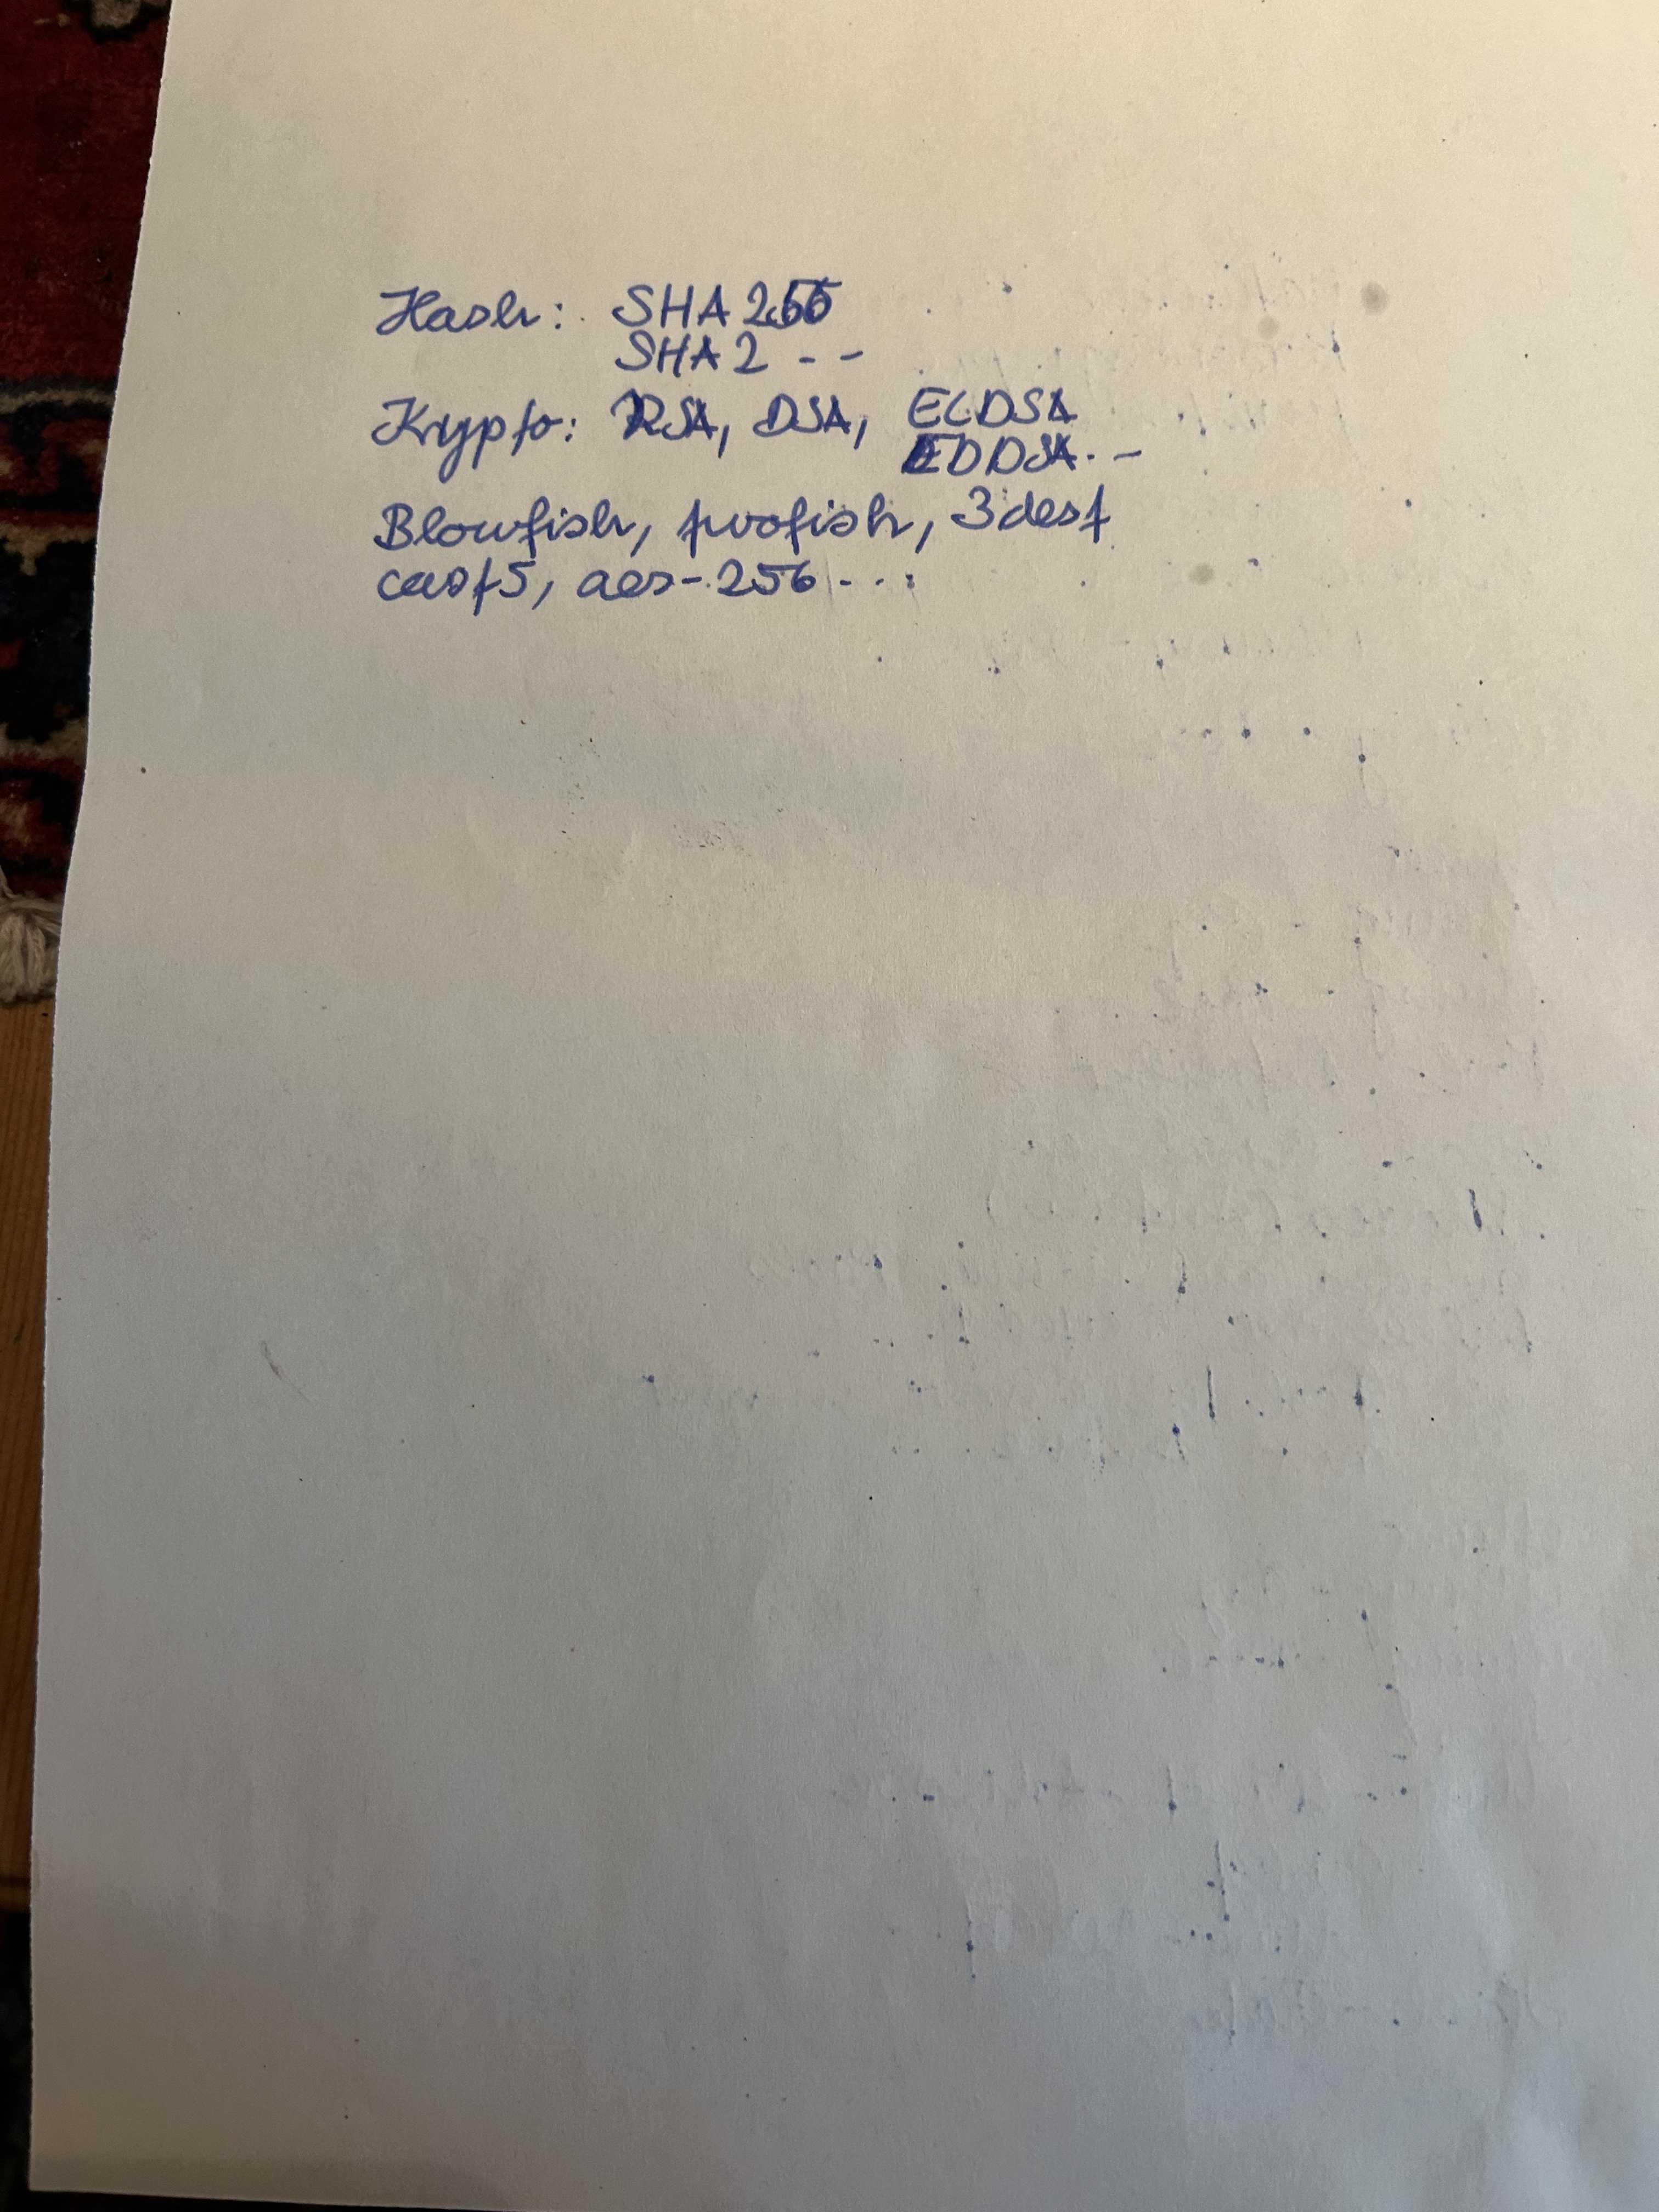 Hash: SHA256
SHA2 - -
Krypto: RSA, DSA, ECDSA
EDDSA. -
Blowfish, twofish, 3dest
cast5, aes-256...